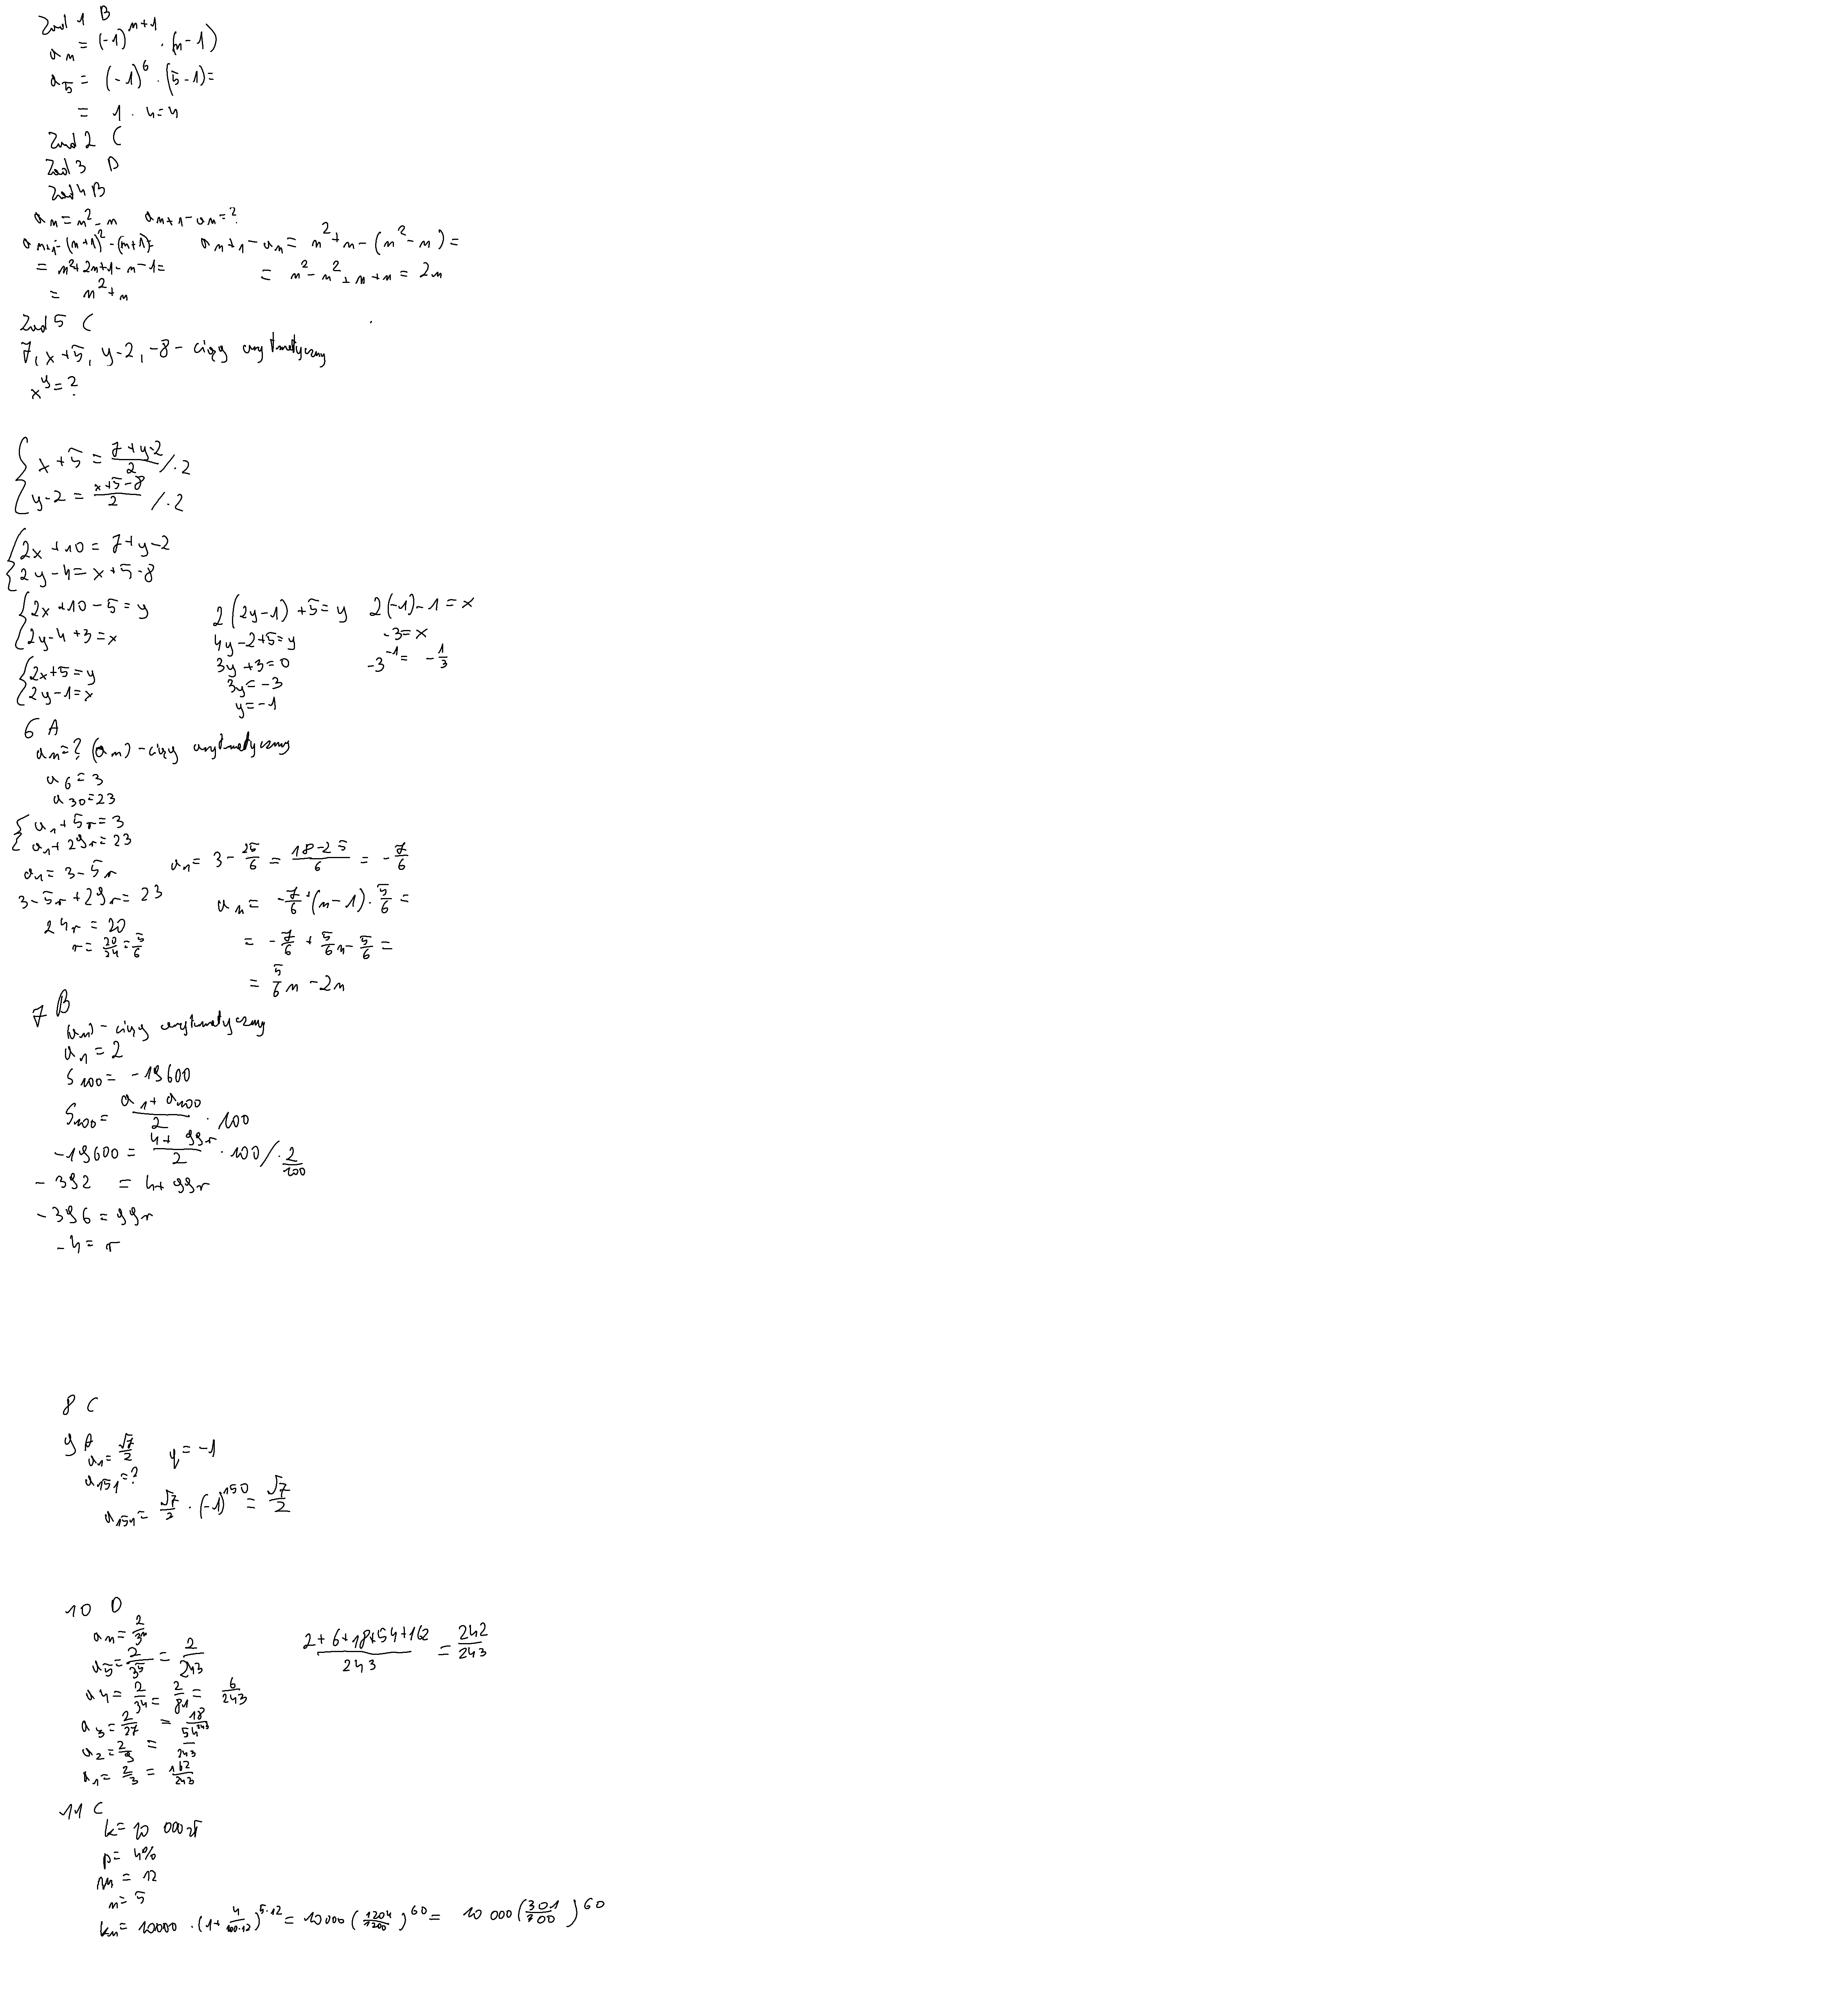 Zad 1 B
a_n = (-1)^{n+1} · (n-1)
a_5 = (-1)^6 · (5-1) =
= 1 · 4 = 4
Zad 2 C
Zad 3 D
Zad 4 B
a_n = n^2 - n   a_{n+1} - a_n = ?
a_{n+1} = (n+1)^2 - (n+1) =
= n^2 + 2n + 1 - n - 1 =
= n^2 + n
a_{n+1} - a_n = n^2 + n - (n^2 - n) =
= n^2 - n^2 + n + n = 2n
Zad 5 C
7, x+5, y-2, -8 - ciąg arytmetyczny
x^y = ?
x + 5 = \frac{7+y-2}{2} / ·2
y - 2 = \frac{x+5-8}{2} / ·2
2x + 10 = 7 + y - 2
2y - 4 = x + 5 - 8
2x + 10 - 5 = y
2y - 4 + 3 = x
2x + 5 = y
2y - 1 = x
2(2y-1) + 5 = y
4y - 2 + 5 = y
3y + 3 = 0
3y = -3
y = -1
2(-1) - 1 = x
-3 = x
-3^{-1} = -\frac{1}{3}
6 A
a_n = ? (a_n) - ciąg arytmetyczny
a_6 = 3
a_{30} = 23
a_1 + 5r = 3
a_1 + 29r = 23
a_1 = 3 - 5r
3 - 5r + 29r = 23
24r = 20
r = \frac{20}{24} = \frac{5}{6}
a_1 = 3 - \frac{25}{6} = \frac{18-25}{6} = -\frac{7}{6}
a_n = -\frac{7}{6} + (n-1) · \frac{5}{6} =
= -\frac{7}{6} + \frac{5}{6}n - \frac{5}{6} =
= \frac{5}{6}n - 2n
7 B
(a_n) - ciąg arytmetyczny
a_1 = 2
S_{100} = -19600
S_{100} = \frac{a_1 + a_{100}}{2} · 100
-19600 = \frac{4 + 99r}{2} · 100 / · \frac{2}{100}
-392 = 4 + 99r
-396 = 99r
-4 = r
8 C
9 A
a_1 = \frac{√7}{2}   q = -1
a_{151} = ?
a_{151} = \frac{√7}{2} · (-1)^{150} = \frac{√7}{2}
10 D
a_n = \frac{2}{3^n}
a_5 = \frac{2}{3^5} = \frac{2}{243}
a_4 = \frac{2}{3^4} = \frac{2}{81} = \frac{6}{243}
a_3 = \frac{2}{27} = \frac{18}{243}
a_2 = \frac{2}{9} = \frac{54}{243}
a_1 = \frac{2}{3} = \frac{162}{243}
\frac{2+6+18+54+162}{243} = \frac{242}{243}
11 C
k = 10 000 zł
p = 4%
m = 12
n = 5
k_n = 10000 · (1 + \frac{4}{100·12})^{5·12} = 10000 (\frac{1204}{1200})^{60} = 10 000 (\frac{301}{300})^{60}